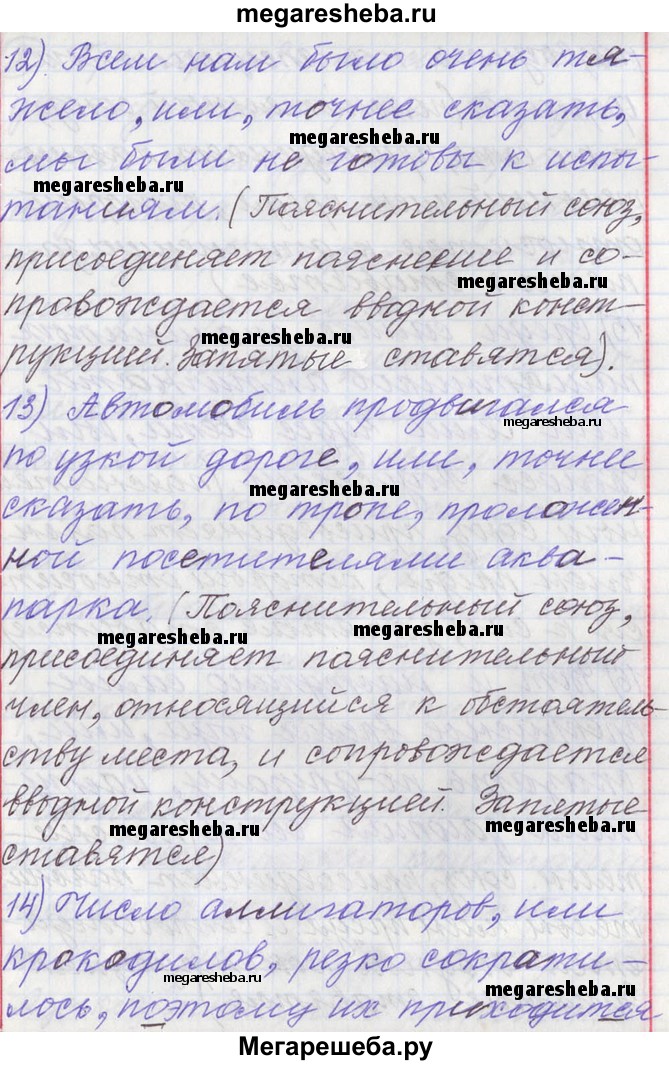 megaresheba.ru
12) Всем нам было очень тя-
жело, или, точнее сказать,
megaresheba.ru
мы были не готовы к испы-
megaresheba.ru
таниям. (Пояснительный союз,
присоединяет пояснение и со-
megaresheba.ru
провождается вводной конст-
megaresheba.ru
рукцией. Запятые ставятся).
13) Автомобиль продвигался
megaresheba.ru
по узкой дороге, или, точнее
megaresheba.ru
сказать, по тропе, проложен-
ной посетителями аква-
парка. (Пояснительный союз,
megaresheba.ru
megaresheba.ru
присоединяет пояснительный
член, относящийся к обстоятель-
ству места, и сопровождается
вводной конструкцией. Запятые
megaresheba.ru
megaresheba.ru
ставятся)
14) Число аллигаторов, или
крокодилов, резко сократи-
megaresheba.ru
megaresheba.ru
лось, поэтому их приходится
Мегарешеба.ру